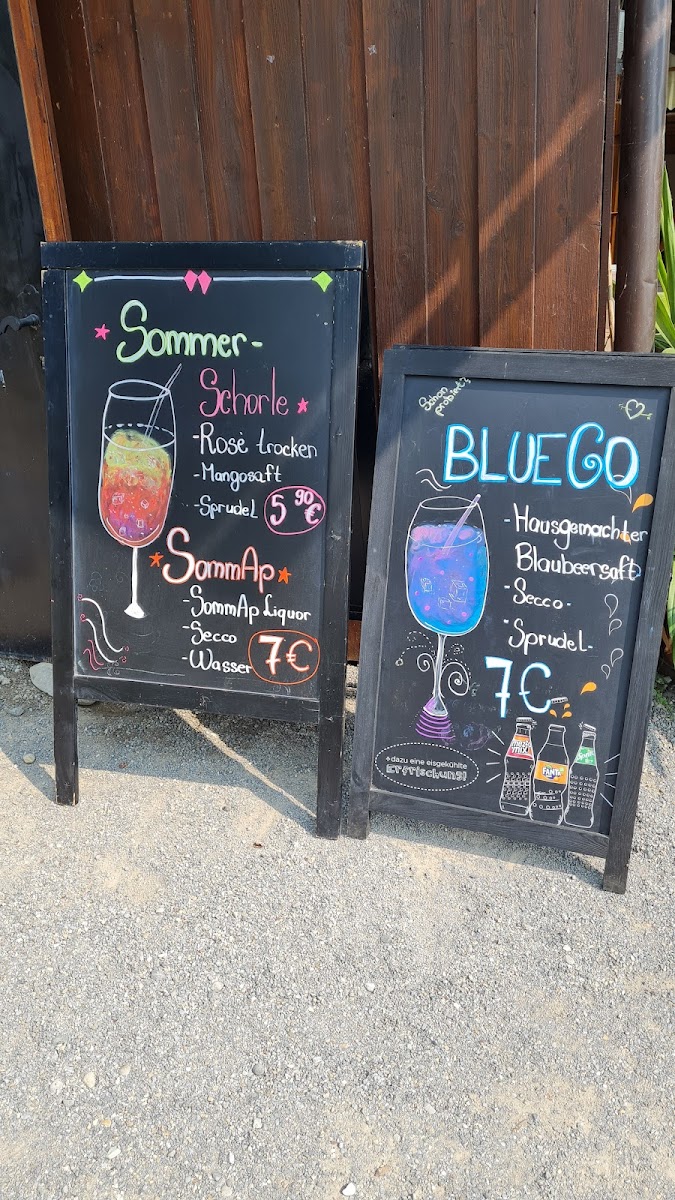 Sommer-
Schorle
-Rosè trocken
-Mangosaft
-Sprudel 5 90 €
SommAp
-SommAp Liquor
-Secco
-Wasser 7€
Schon
probiert?
BLUEGO
-Hausgemachter
Blaubeersaft
-Secco-
-Sprudel-
7€
+dazu eine eisgekühlte
Erfrischung!
mezzo
mix
FANTA